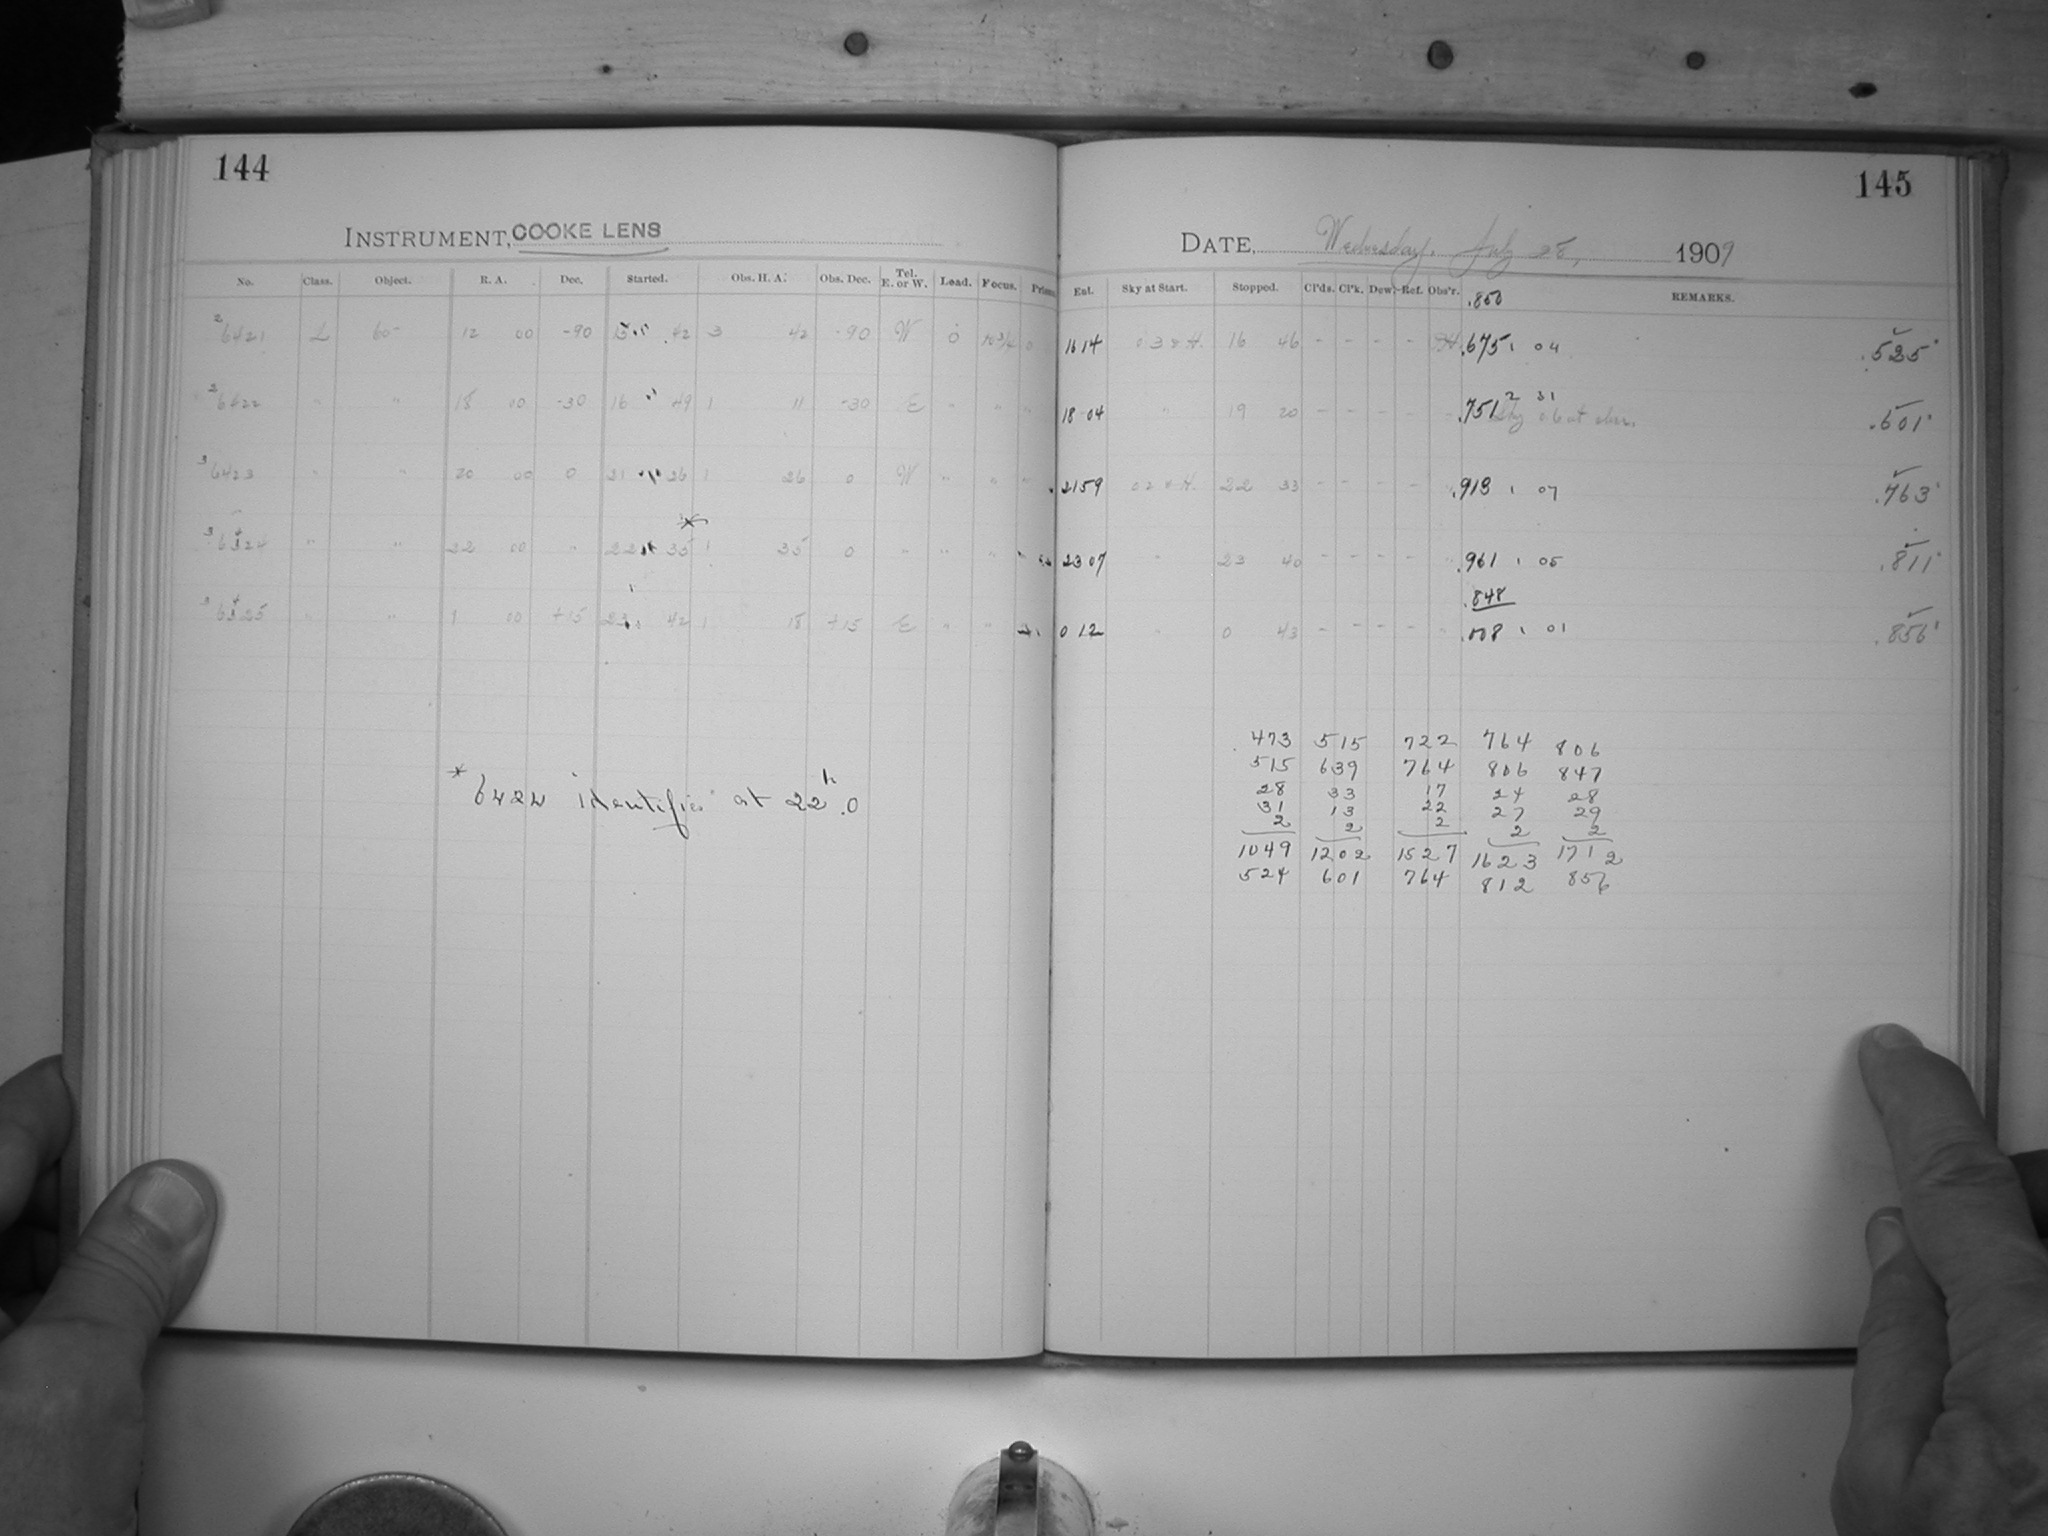 144
INSTRUMENT, COOKE LENS
No. Class. Object. R. A. Dec. Started. Obs. H. A. Obs. Dec. Tel. E. or W. Load. Focus.
6421 L 60 12 00 -90 15 42 3 42 -90 W 0 10 3/4 0
6422 " " 18 00 -30 16 49 1 11 -30 E " " "
6423 " " 20 00 0 21 26 1 26 0 W " " "
6424 " " 22 00 " 22 35 1 35 0 " " "
6425 " " 1 00 +15 23 42 1 18 +15 E " "
* 6424 identifies at 22h.0
145
DATE, Wednesday, July 28, 1909
Ent. Sky at Start. Stopped. Cl'ds. Cl'k. Dew. Ref. Obs'r. REMARKS.
.850
16 14 16 46 - - - - .675 1 04 .525
18 04 " 19 20 - - - - .751 2 31 .601
21 59 22 33 - - - - .913 1 07 .763
23 07 " 23 40 - - - - .961 1 05 .811
.848
0 12 " 0 43 - - - - .008 1 01 .856
473 515 722 764 806
515 639 764 806 847
28 33 17 24 28
31 13 22 27 29
2 2 2 2 2
1049 1202 1527 1623 1712
524 601 764 812 856